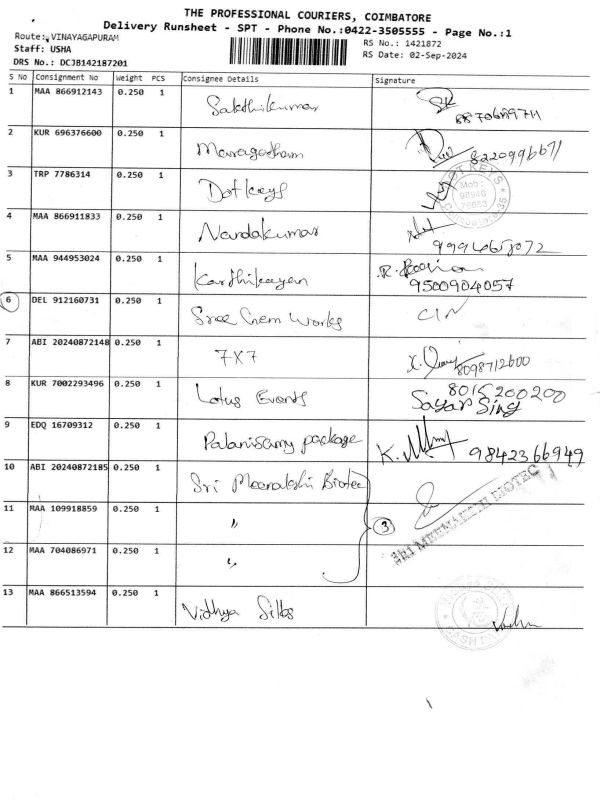 THE PROFESSIONAL COURIERS, COIMBATORE
Delivery Runsheet - SPT - Phone No.:0422-3505555 - Page No.:1
Route: VINAYAGAPURAM
RS No.: 1421872
Staff: USHA
RS Date: 02-Sep-2024
DRS No.: DCJB142187201
S No Consignment No Weight PCS Consignee Details Signature
1 MAA 866912143 0.250 1 Sakthikumar
2 KUR 696376600 0.250 1 8220996671
3 TRP 7786314 0.250 1 Dotkeys
4 MAA 866911833 0.250 1 Nandakumar 9994065072
5 MAA 944953024 0.250 1 Karthikayen 9500904057
6 DEL 912160731 0.250 1 Sree Chem Works C/N
7 ABI 20240872148 0.250 1 7X7 8098712600
8 KUR 7002293496 0.250 1 Lotus Events 8015200200
Sagar Sing
9 EDQ 16709312 0.250 1 Palanisamy package K. 9842366949
10 ABI 20240872185 0.250 1 Sri Meenakshi Biotec
SRI MEENAKSHI BIOTEC
11 MAA 109918859 0.250 1 " 3
12 MAA 704086971 0.250 1 "
13 MAA 866513594 0.250 1 Vidhya Silks